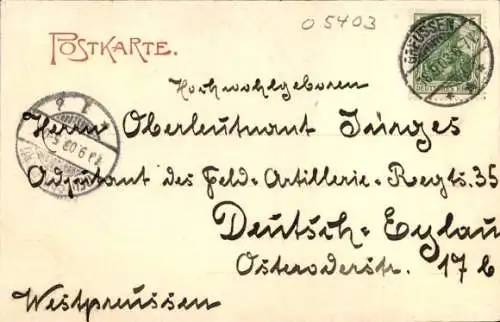 0 5403
POSTKARTE.
GREUSSEN
DEUTSCHES REICH
Hochwohlgeboren
Herrn Oberleutnant Jürges
Adjutant des Feld-Artillerie-Regts. 35
Deutsch-Eylau
Osteroderstr. 17 b
Westpreussen